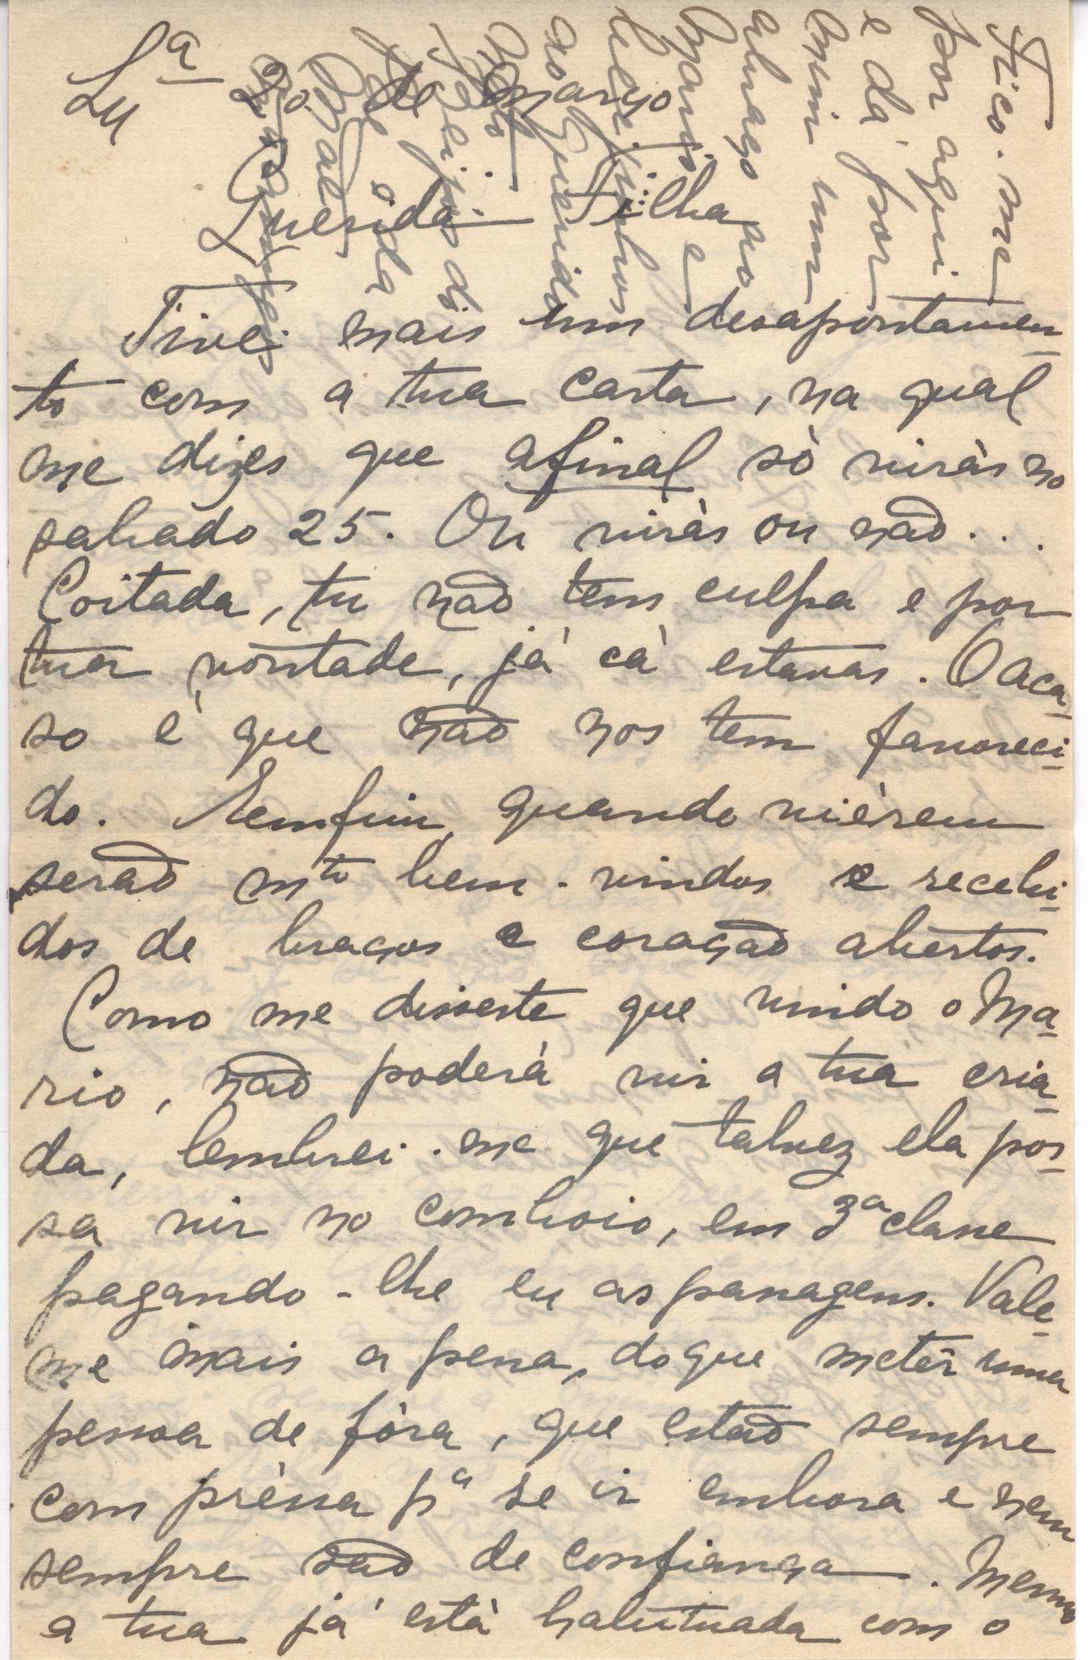 Lxª 20 de março
Querida Filha
Tive mais um desapontamen-
to com a tua carta, na qual
me dizes que afinal só viràs no
sabado 25. Ou viràs ou não...
Coitada, tu não tem culpa e por
tua vontade, já cá estavas. O aca-
so é que não nos tem favoreci-
do. Remfim, quando vièrem
serão mto bem-vindos e recebi-
dos de braços e coração abertos.
Como me disseste que vindo o Ma-
rio, não poderà vir a tua cria-
da, lembrei-me que talvez ela pos-
sa vir no comboio, em 3ª classe
pagando-lhe eu as passagens. Vale-
me mais a pena, do que metêr uma
pessoa de fòra, que estão sempre
com prèssa pª se ir embora e nem
sempre são de confiança. Mesmo
a tua já està habituada com o
Fico-me
por aqui
e dá por
mim um
abraço ao
Mario e
beijinhos
ao querido
beijos da